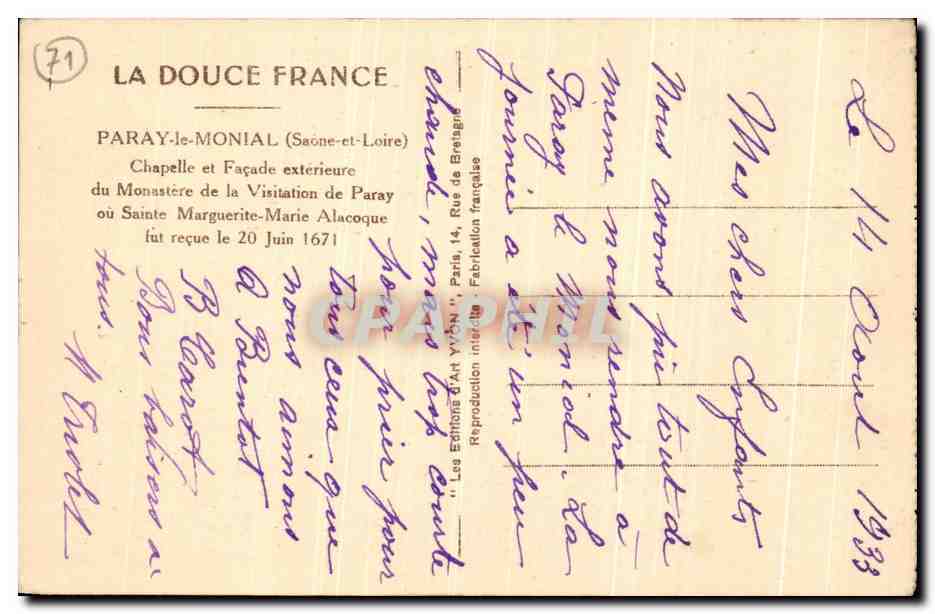 71
LA DOUCE FRANCE
PARAY-le-MONIAL (Saône-et-Loire)
Chapelle et Façade extérieure
du Monastère de la Visitation de Paray
où Sainte Marguerite-Marie Alacoque
fut reçue le 20 Juin 1671
" Les Editions d'Art YVON ", Paris, 14, Rue de Bretagne
Reproduction interdite Fabrication française
Le 14 Aout 1933
Mes chers Enfants
Nous avons pû tout de
meme nous rendre à
Paray le Monial. La
journée a été un peu
chaude, mais trop courte
pour prier pour
tous ceux que
nous aimons
A Bientot
Bons baisers a
tous.
CRAPHIL